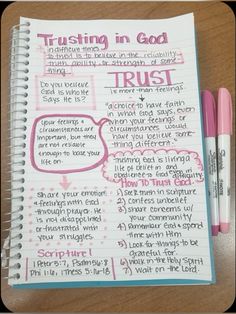 Trusting in God
in difficult times
to trust is to believe in the reliability
truth, ability, or strength of some
thing.
Do you believe
God is who He
Says He is?
TRUST
is more than feelings.
a choice to have faith
in what God says, even
when your feelings or
circumstances would
have you believe some
thing different.
Your feelings &
circumstances are
important, but they
are not reliable
enough to base your
life on.
Trusting God is living a
life of belief in and
obedience to God
Share your emotions
& feelings with God
through prayer. He
is not disappointed
or frustrated
with your struggles.
How To Trust God
1) Seek truth in scripture
2) Confess unbelief
3) Share concerns w/
your community
4) Remember God & spend
time with Him
5) Look for things to be
grateful for.
6) Walk in the Holy Spirit
7) Wait on the Lord.
Scripture
1 Peter 5:7, Psalm 56:8
Phil 4:6, 1 Thess 5:16-18